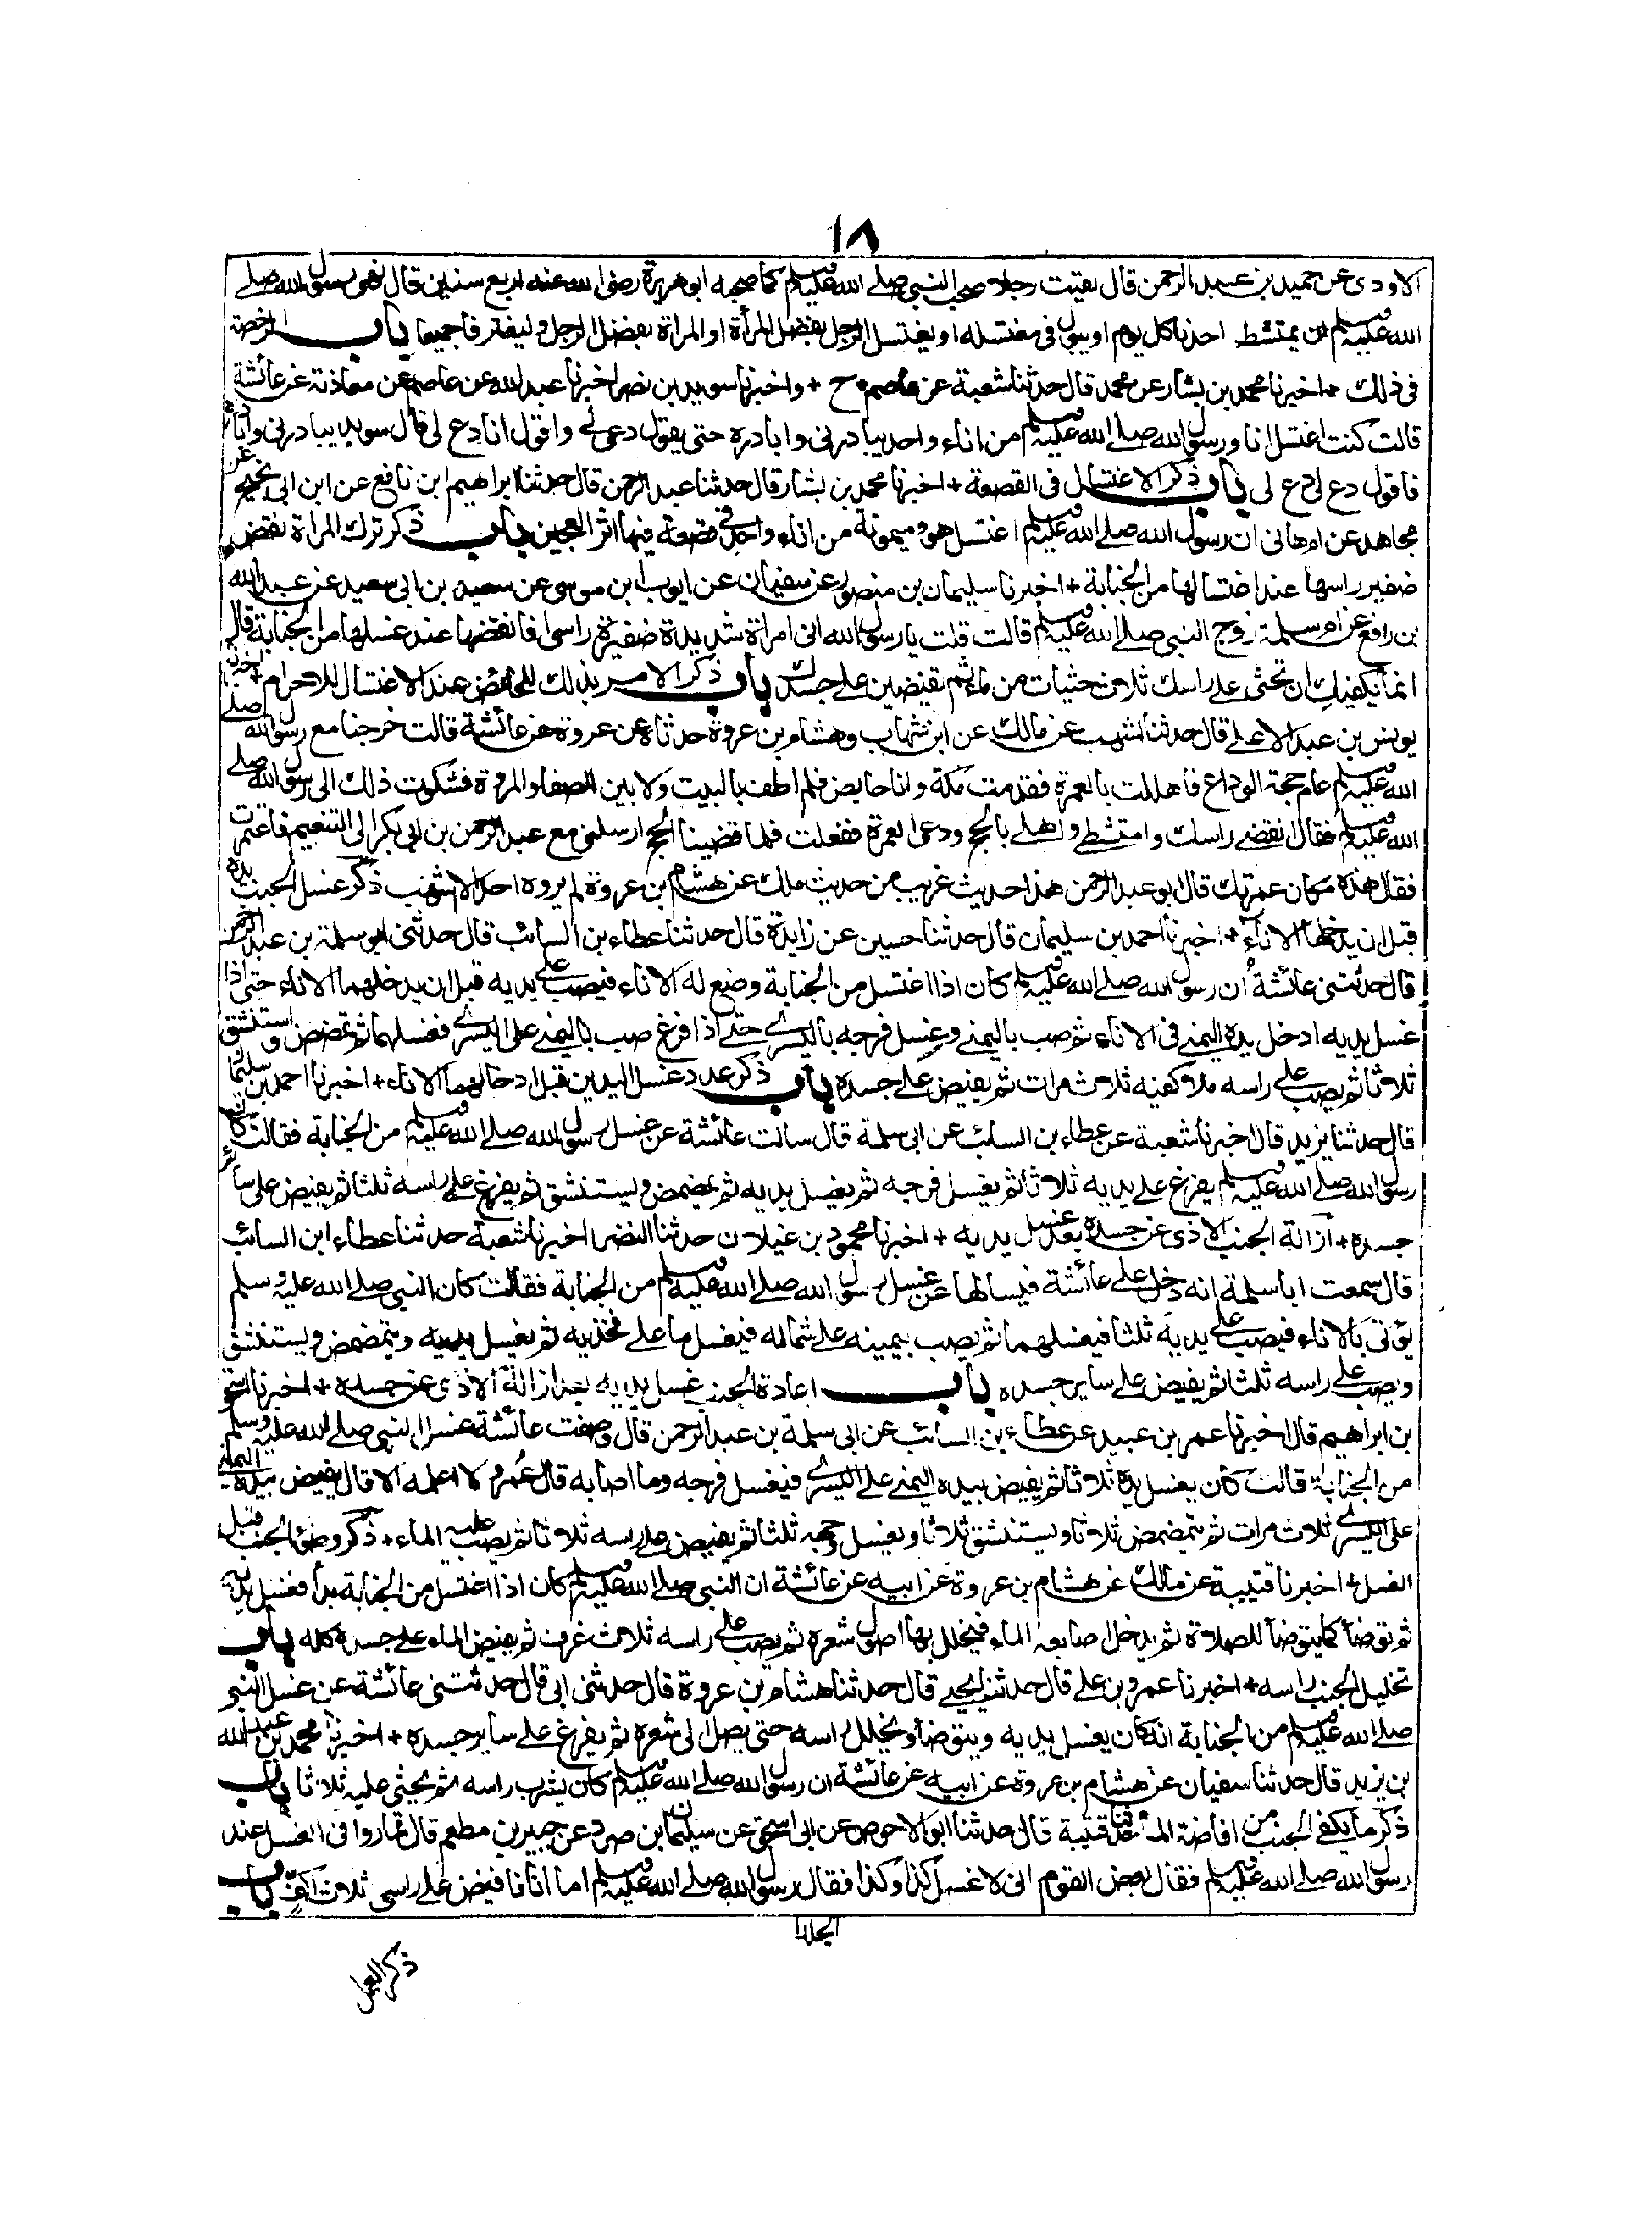 ١٨
الاودى عن حميد بن عبد الرحمن قال لقيت رجلا صحب النبى صلے الله عليه وسلم كما صحبه ابو هريرة رضى الله عنه اربع سنين قال نهى رسول الله صلے
الله عليه وسلم ان يمتشط احدنا كل يوم او يبول فى مغتسله او يغتسل الرجل بفضل المرأة او المراة بفضل الرجل وليغترفا جميعا باب الرخصة
فى ذلك + اخبرنا محمد بن بشار عن محمد قال حدثنا شعبة عن عاصم + ح + واخبرنا سويد بن نصر اخبرنا عبد الله عن عاصم عن معاذة عن عائشة
قالت كنت اغتسل انا ورسول الله صلے الله عليه وسلم من اناء واحد يبادرنى وابادره حتى يقول دعى لے واقول انا دع لى قال سويد يبادرنى وابادره
فاقول دع لى دع لى باب ذكر الاغتسال فى القصعة + اخبرنا محمد بن بشار قال حدثنا عبد الرحمن قال حدثنا ابراهيم ابن نافع عن ابن ابى نجيح عن
مجاهد عن ام هانى ان رسول الله صلے الله عليه وسلم اغتسل هو وميمونة من اناء واحد فى قصعة فيها اثر العجين باب ذكر ترك المراة نقض
ضفير راسها عند اغتسالها من الجنابة + اخبرنا سليمان بن منصور عن سفيان عن ايوب ابن موسى عن سعيد بن ابى سعيد عن عبد الله
بن رافع عن ام سلمة زوج النبى صلے الله عليه وسلم قالت قلت يا رسول الله انى امراة شديدة ضفيرة راسى افانقضها عند غسلها من الجنابة قال
انما يكفيك ان تحثى على راسك ثلاث حثيات من ماء ثم تفيضين على جسدك باب ذكر الامر بذالك للحائض عند الاغتسال للاحرام + اخبرنا
يونس بن عبد الاعلے قال حدثنا اشهب عن مالك عن ابن شهاب وهشام بن عروة حدثاه عن عروة عن عائشة قالت خرجنا مع رسول الله صلے
الله عليه وسلم عام حجة الوداع فاهللت بالعمرة فقدمت مكة وانا حايض فلم اطف بالبيت ولا بين الصفا والمروة فشكوت ذلك الى رسول الله صلے
الله عليه وسلم فقال انقضے راسك وامتشطے واهلے بالحج ودعى العمرة ففعلت فلما قضينا الحج ارسلنى مع عبد الرحمن بن ابى بكر الى التنعيم فاعتمرت
فقال هذه مكان عمرتك قال ابو عبد الرحمن هذا حديث غريب من حديث ملك عن هشام بن عروة لم يروه احد الا اشهب ذكر غسل الجنب يده
قبل ان يدخلها الاناء + اخبرنا احمد بن سليمان قال حدثنا حسين عن زايدة قال حدثنا عطاء بن السائب قال حدثنى ابو سلمة بن عبد الرحمن
قال حدثتنى عائشة ان رسول الله صلے الله عليه وسلم كان اذا اغتسل من الجنابة وضع له الاناء فيصب على يديه قبل ان يدخلهما الاناء حتى اذا
غسل يديه ادخل يده اليمنے فى الاناء ثم صب باليمنے وغسل فرجه باليسرے حتے اذا فرغ صب باليمنے على اليسرے فغسلهما ثم تمضمض واستنشق
ثلاثا ثم يصب على راسه ملا كفيه ثلاث مرات ثم يفيض علے جسده باب ذكر عدد غسل اليدين قبل ادخالهما الاناء + اخبرنا احمد بن سليمان
قال حدثنا يزيد قال اخبرنا شعبة عن عطاء بن السائب عن ابى سلمة قال سالت عائشة عن غسل رسول الله صلے الله عليه وسلم من الجنابة فقالت كان
رسول الله صلے الله عليه وسلم يفرغ علے يديه ثلاثا ثم يغسل فرجه ثم يغسل يديه ثم يمضمض ويستنشق ثم يفرغ علے راسه ثلثا ثم يفيض على سائر
جسده + ازالة الجنب الاذى عن جسده بعد غسل يديه + اخبرنا محمود بن غيلان حدثنا النضر اخبرنا شعبة حدثنا عطاء ابن السائب
قال سمعت ابا سلمة انه دخل على عائشة فيسالها عن غسل رسول الله صلے الله عليه وسلم من الجنابة فقالت كان النبى صلے الله عليه وسلم
يؤتى بالاناء فيصب على يديه ثلثا فيغسلهما ثم يصب بيمينه على شماله فيغسل ما على فخذيه ثم يغسل يديه ويتمضمض ويستنشق
ويصب على راسه ثلثا ثم يفيض على ساير جسده باب اعادة الجنب غسل يديه بعد ازالة الاذى عن جسده + اخبرنا اسحق
بن ابراهيم قال اخبرنا عمر بن عبيد عن عطاء بن السائب عن ابى سلمة بن عبد الرحمن قال وصفت عائشة غسل النبى صلے الله عليه وسلم
من الجنابة قالت كان يغسل يده ثلاثا ثم يفيض بيده اليمنے على اليسرے فيغسل فرجه وما اصابه قال عمر ولا اعلمه الا قال يفيض بيده اليمنى
على اليسرے ثلاث مرات ثم يتمضمض ثلاثا ويستنشق ثلاثا ويغسل وجهه ثلثا ثم يفيض على راسه ثلاثا ثم يصب عليه الماء + ذكر وضئ الجنب قبل
الغسل + اخبرنا قتيبة عن مالك عن هشام بن عروة عن ابيه عن عائشة ان النبى صلے الله عليه وسلم كان اذا اغتسل من الجنابة بدأ فغسل يديه
ثم توضأ كما يتوضأ للصلاة ثم يدخل اصابعه الماء فيخلل بها اصول شعره ثم يصب على راسه ثلاث غرف ثم يفيض الماء على جسده كله باب
تخليل الجنب راسه + اخبرنا عمرو بن على قال حدثنا يحيے قال حدثنا هشام بن عروة قال حدثنى ابى قال حدثتنى عائشة عن غسل النبى
صلے الله عليه وسلم من الجنابة انه كان يغسل يديه ويتوضأ ويخلل راسه حتى يصل الى شعره ثم يفرغ على ساير جسده + اخبرنا محمد بن عبد الله
بن يزيد قال حدثنا سفيان عن هشام بن عروة عن ابيه عن عائشة ان رسول الله صلے الله عليه وسلم كان يشرب راسه ثم يحثى عليه ثلاثا باب
ذكر ما يكفے الجنب من افاضة الماء حدثنا قتيبة قال حدثنا ابو الاحوص عن ابى اسحق عن سليمان بن صرد عن جبير بن مطعم قال تماروا فى الغسل عند
رسول الله صلے الله عليه وسلم فقال بعض القوم انى لا غسل كذا وكذا فقال رسول الله صلے الله عليه وسلم اما انا فافيض على راسى ثلاث اكفٍ باب
ذكر العمل